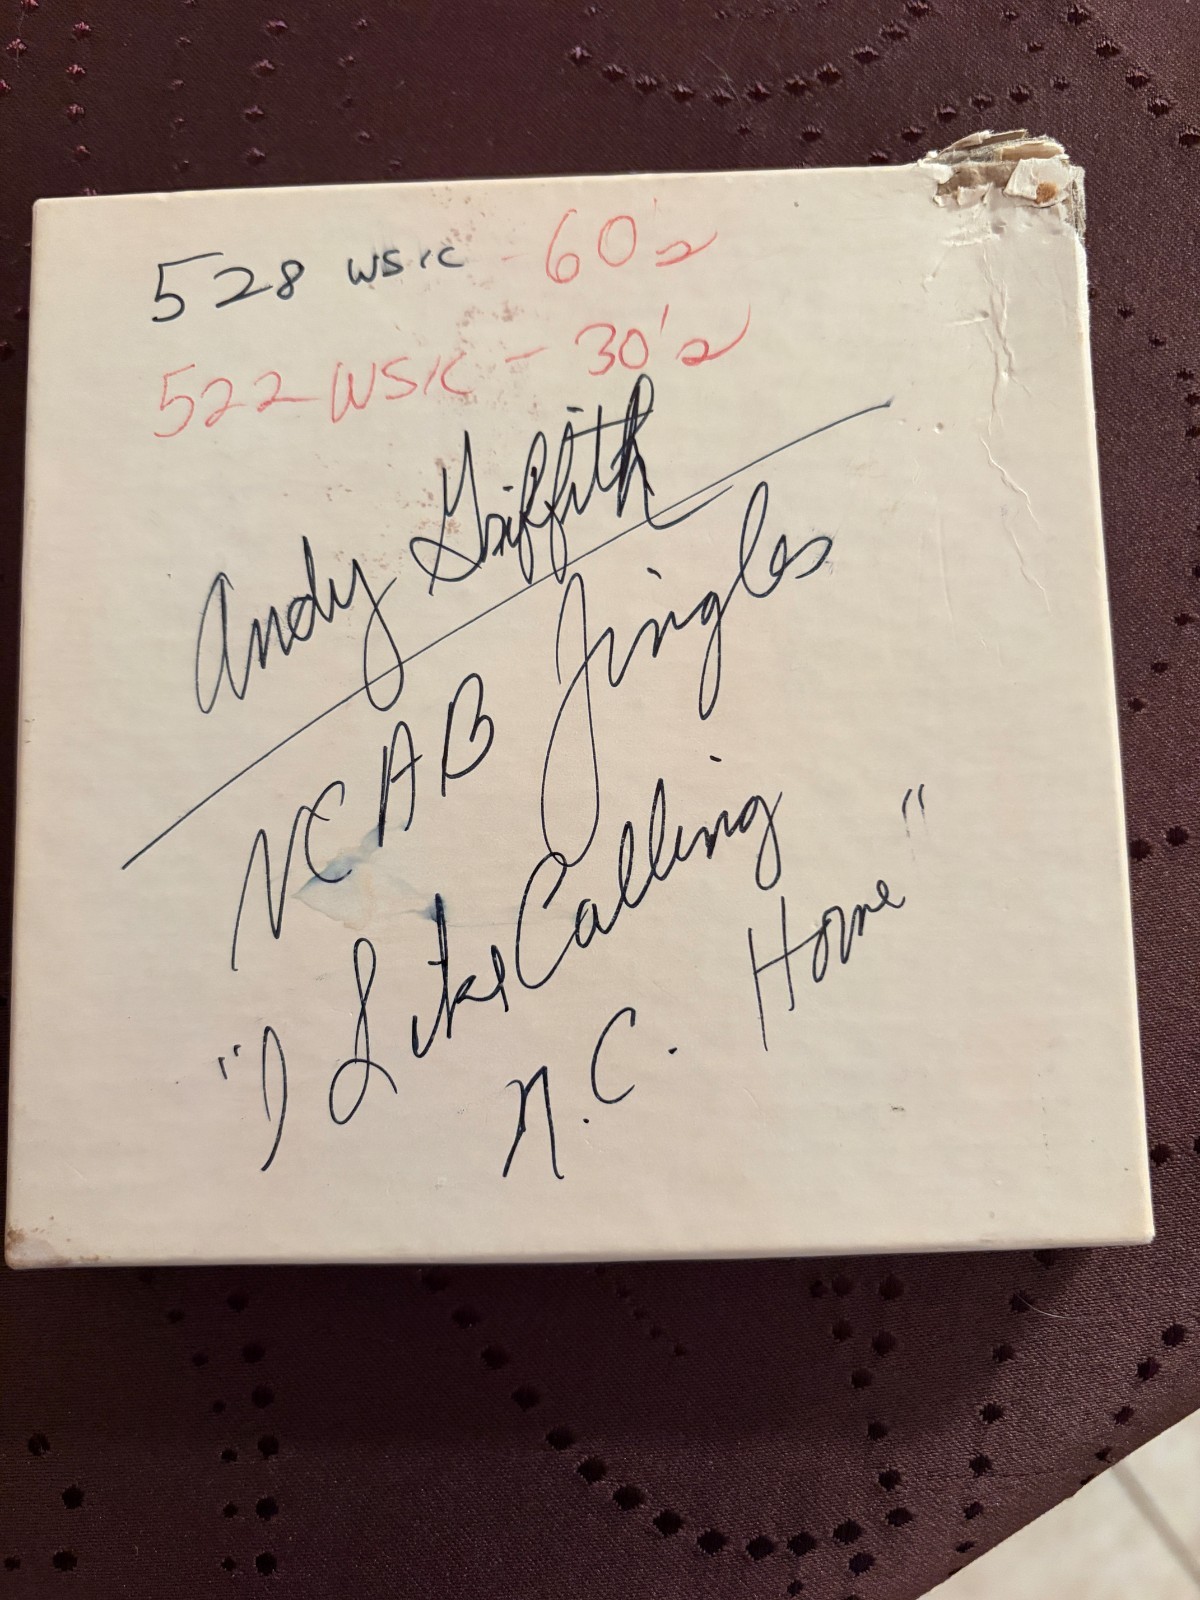 528 WSIC - 60's
522 WSIC - 30's
Andy Griffith
NCAB Jingles
"I Like Calling
N.C. Home"